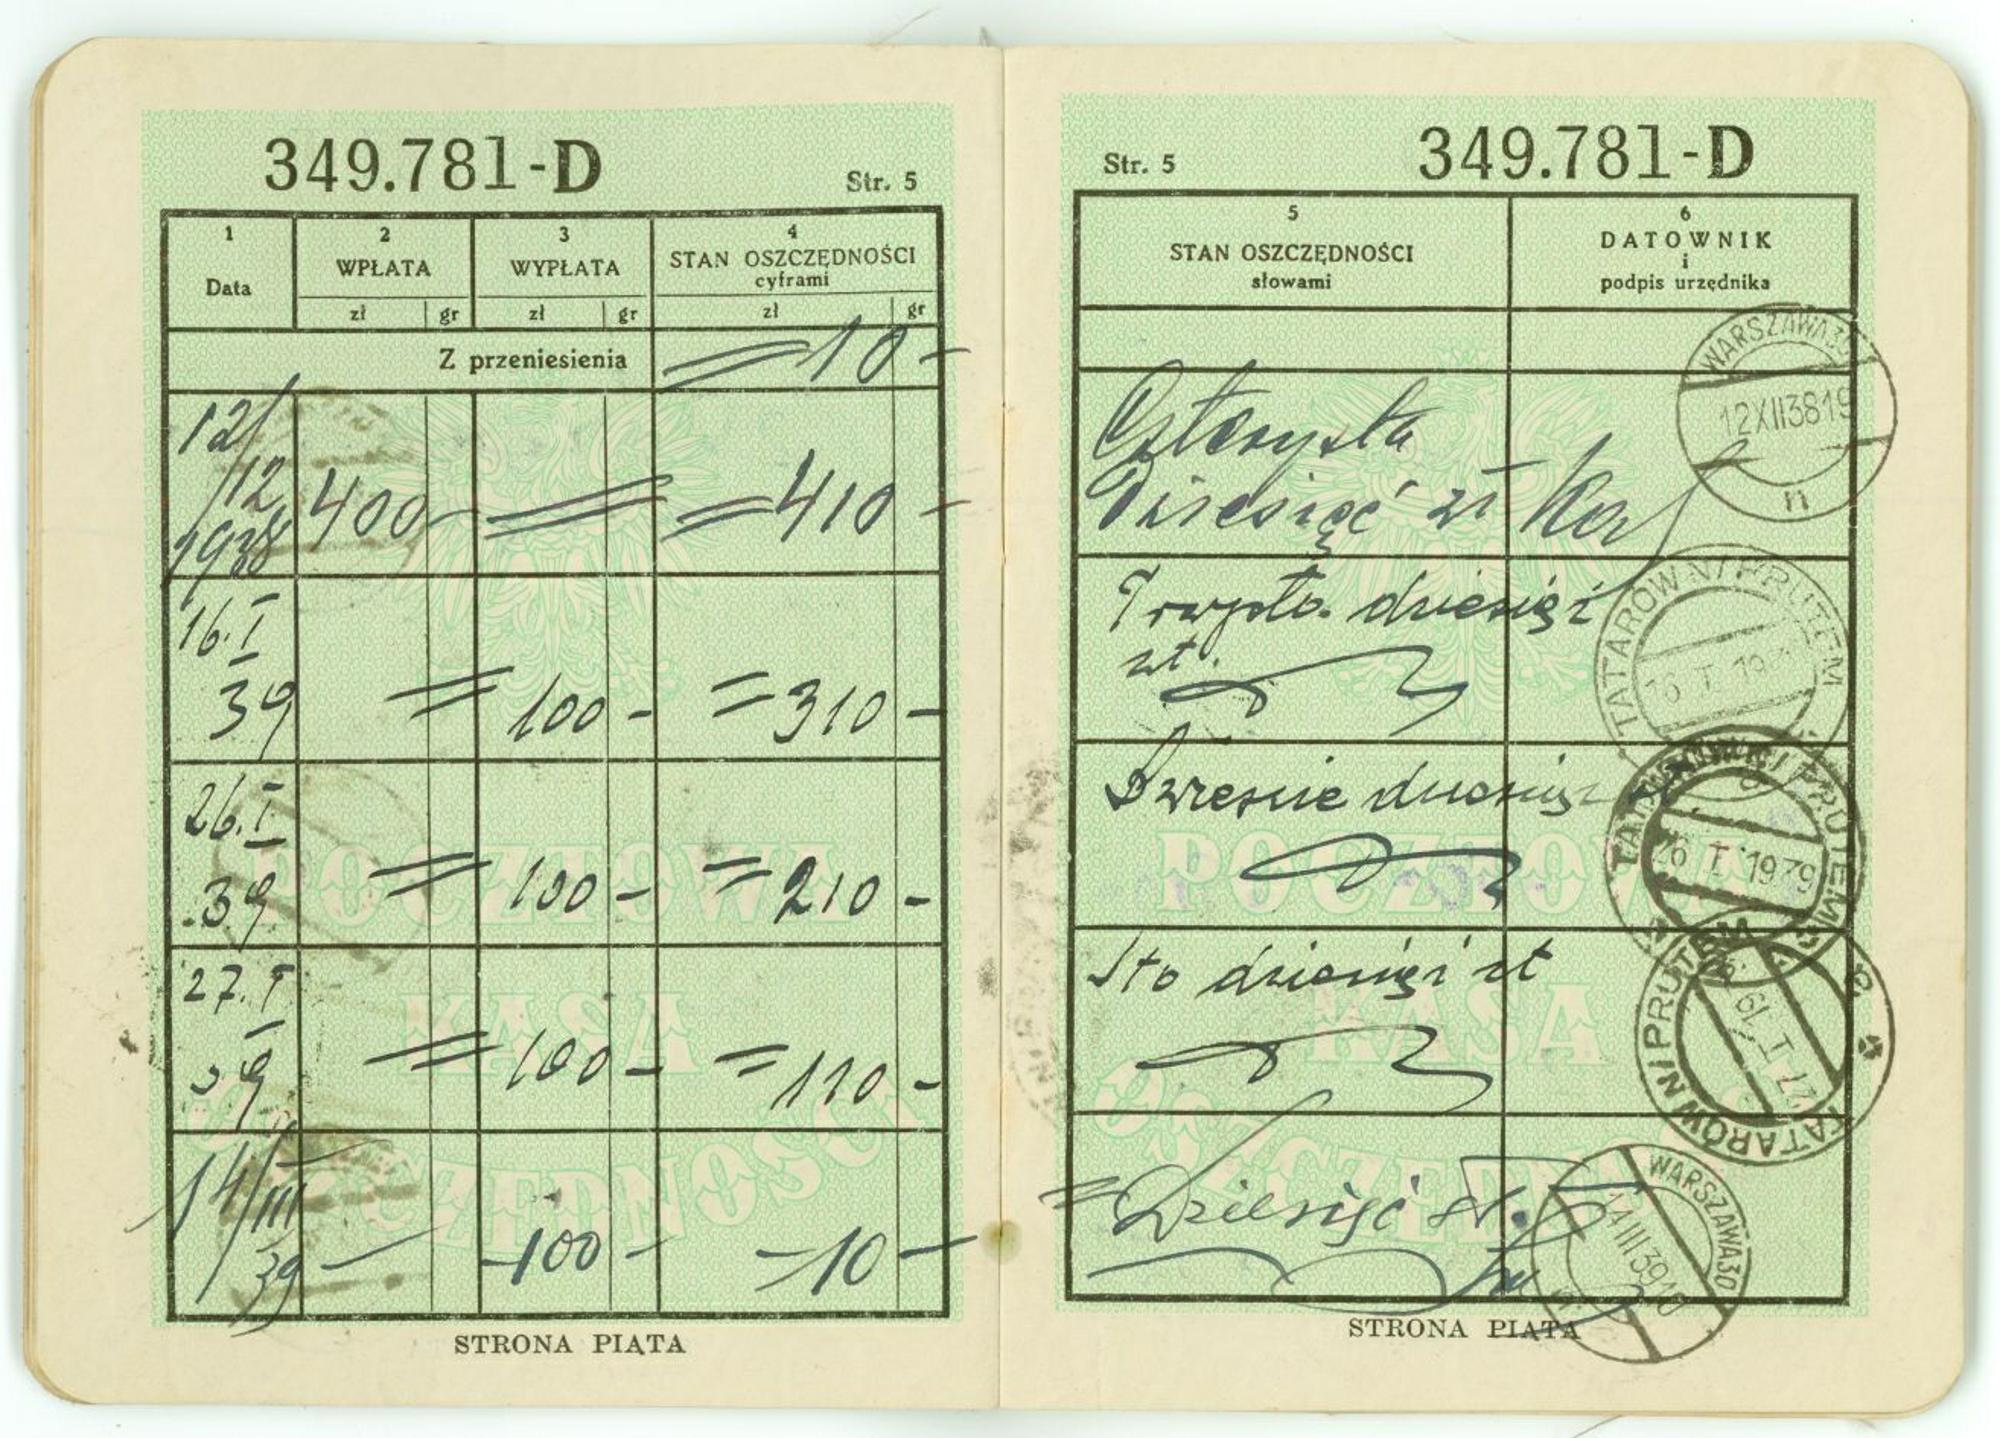 349.781-D
Str. 5
1
Data
2
WPŁATA
zł gr
3
WYPŁATA
zł gr
4
STAN OSZCZĘDNOŚCI
cyframi
zł gr
Z przeniesienia = 10 -
12/12 1938 400 - = = 410 -
16.I 39 = 100 - = 310 -
26.I 39 = 100 - = 210 -
27.I 39 = 100 - = 110 -
14/III 39 - - 100 - - 10 -
POCZTOWA
KASA
OSZCZĘDNOŚCI
STRONA PIĄTA
Str. 5
349.781-D
5
STAN OSZCZĘDNOŚCI
słowami
6
DATOWNIK
i
podpis urzędnika
Czterysta
Dziesięć zł
WARSZAWA 30
12XII3819
n
Trzysta dziesięć
zł.
TATARÓW N/PRUTEM
16 I 19
Dwieście dziesięć
TATARÓW N/PRUTEM
26 I 1939
Sto dziesięć zł
TATARÓW N/PRUTEM
27 I 19
= Dziesięć zł.
WARSZAWA 30
14III3918
POCZTOWA
KASA
STRONA PIĄTA